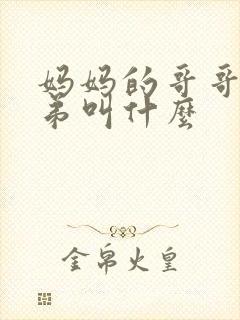 妈妈的哥哥
弟叫什麼
金帛火皇